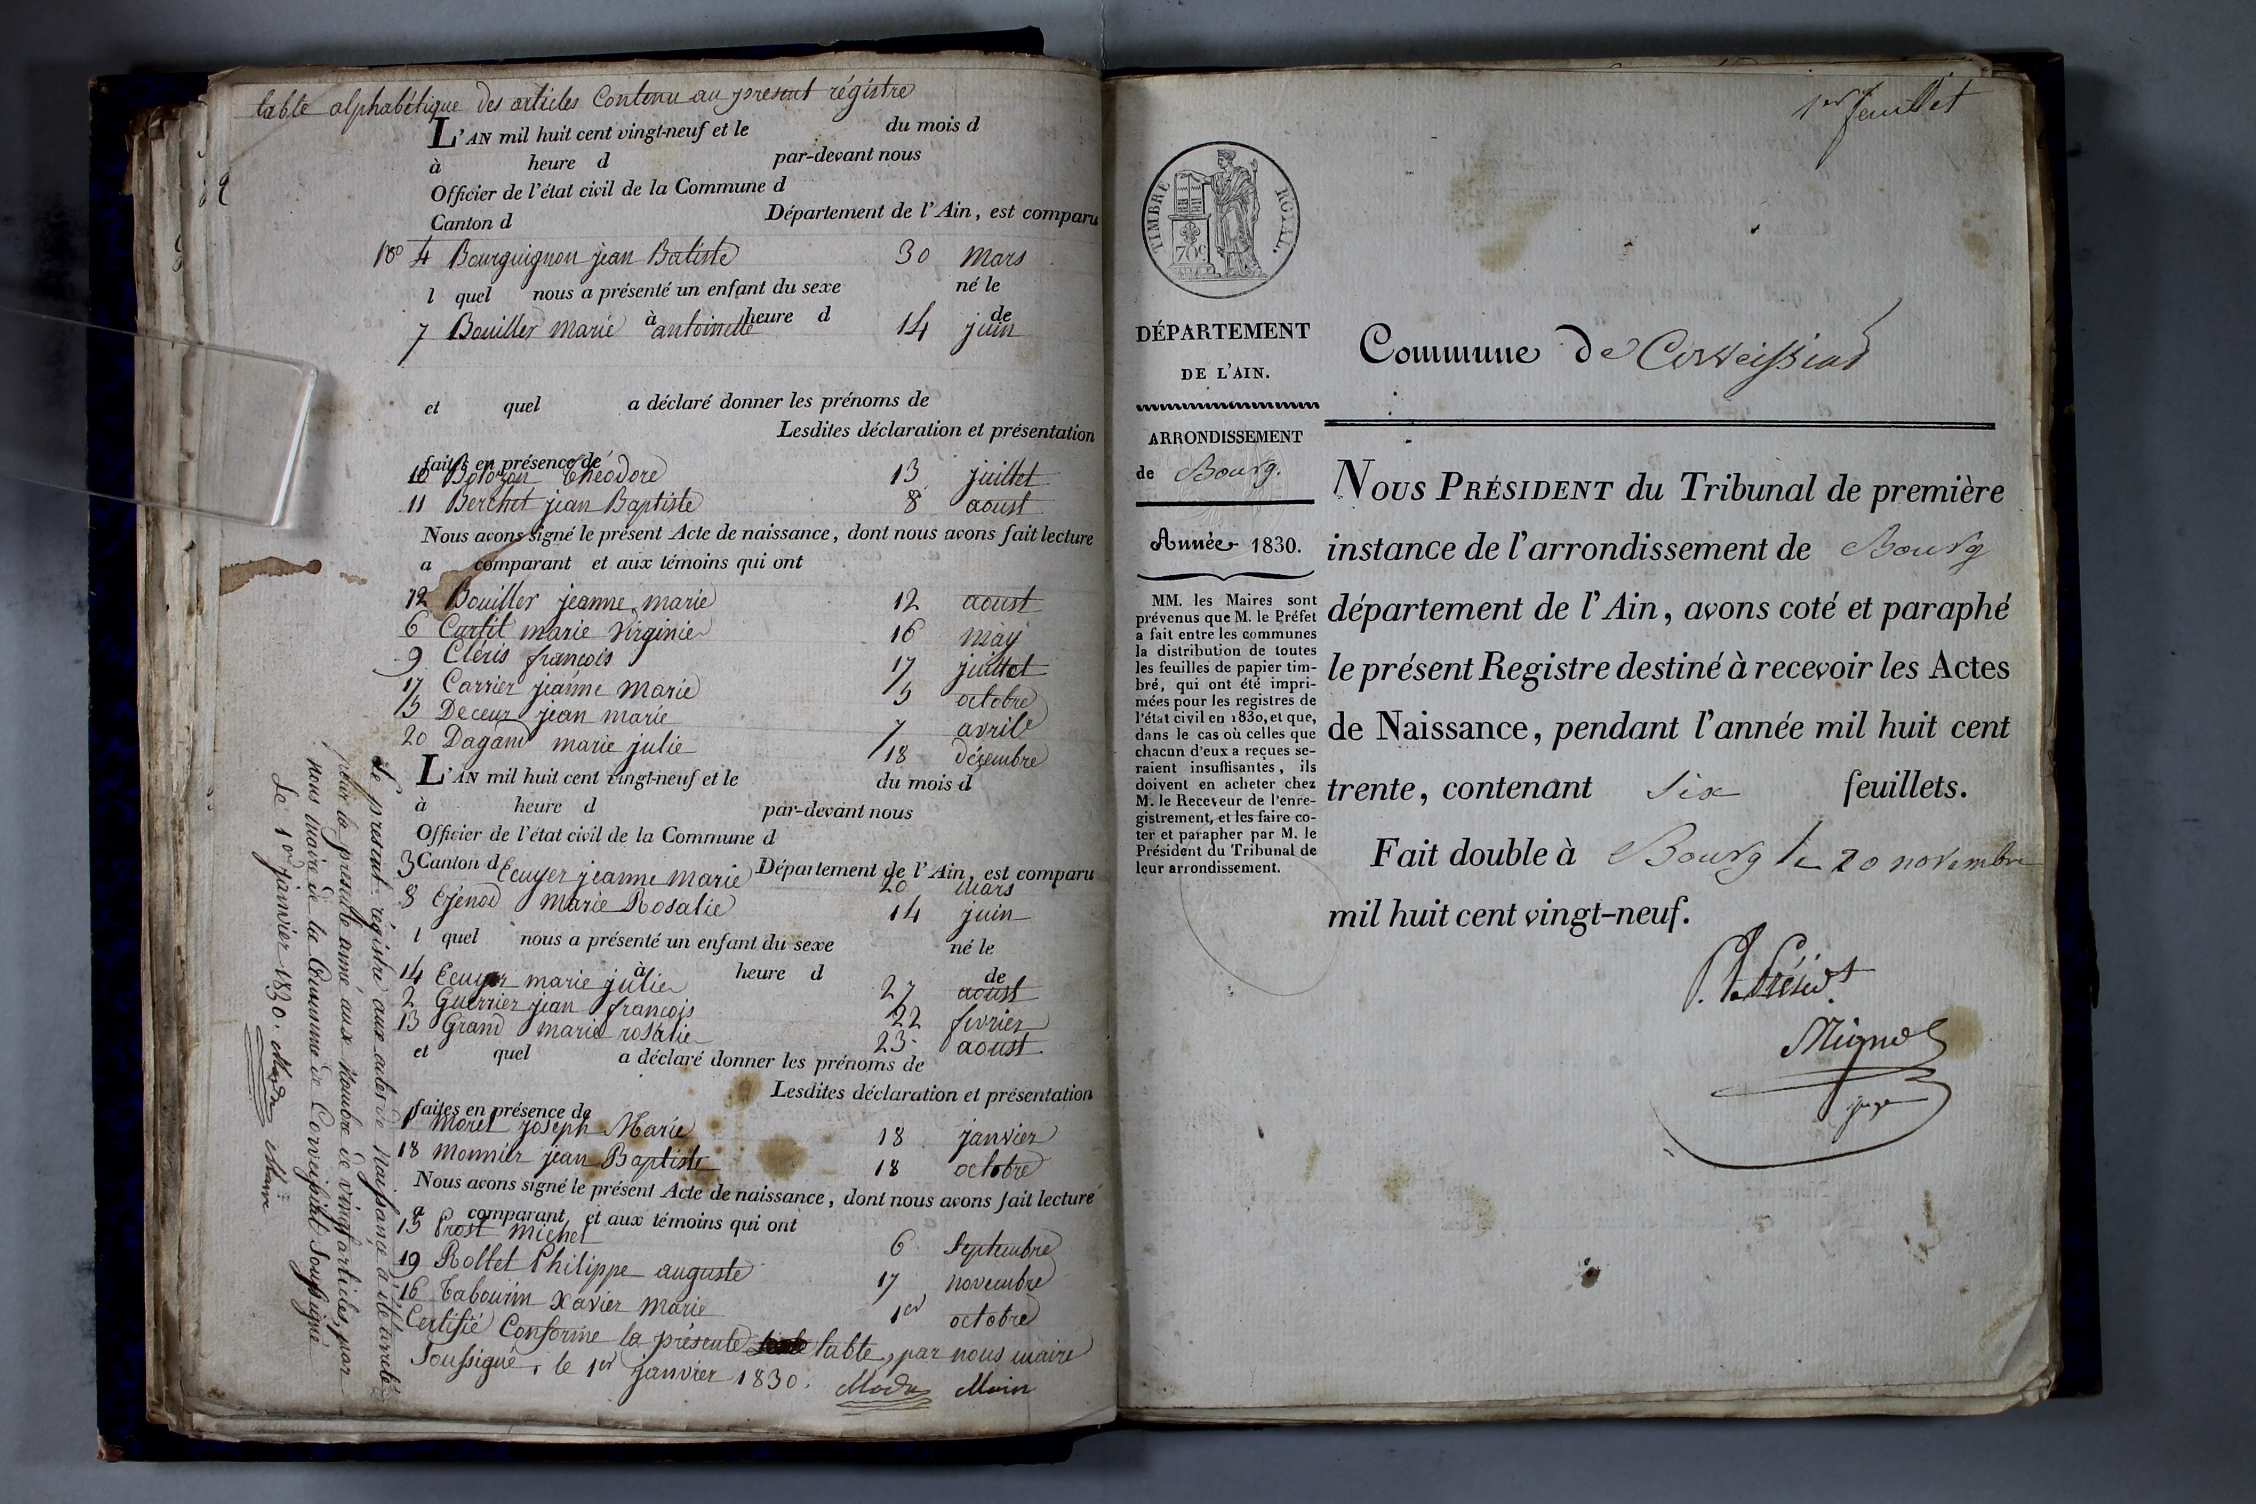 table alphabétique des articles Contenu au present régistre
L'AN mil huit cent vingt-neuf et le du mois d
à heure d par-devant nous
Officier de l'état civil de la Commune d
Canton d Département de l'Ain, est comparu
4 Bourguignon jean Batiste 30 Mars
l quel nous a présenté un enfant du sexe né le
à heure d de
7 Bouiller Marie antoinette 14 juin
et quel a déclaré donner les prénoms de
Lesdites déclaration et présentation
faites en présence de
10 Bolozon théodore 13 juillet
11 Berchet jean Baptiste 8 aoust
Nous avons signé le présent Acte de naissance, dont nous avons fait lecture
a comparant et aux témoins qui ont
12 Bouiller jeanne marie 12 aoust
6 Curtil marie Virginie 16 may
9 Cleris françois 17 juillet
17 Carrier jeanne Marie 5 octobre
5 Deceur jean marie 7 avril
20 Dagand marie julie 18 désembre
L'AN mil huit cent vingt-neuf et le du mois d
à heure d par-devant nous
Officier de l'état civil de la Commune d
Canton d Département de l'Ain, est comparu
3 Ecuyer jeanne marie 20 Mars
8 Ejénod Marie Rosalie 14 juin
l quel nous a présenté un enfant du sexe né le
à heure d de
14 Ecuyer marie julie 27 aoust
2 Guerrier jean françois 22 fevrier
13 Grand marie rosalie 23 aoust
et quel a déclaré donner les prénoms de
Lesdites déclaration et présentation
faites en présence de
1 Morel joseph Marie 18 janvier
18 Monnier jean Baptiste 18 octobre
Nous avons signé le présent Acte de naissance, dont nous avons fait lecture
a comparant et aux témoins qui ont
15 Prost Michel 6 Septembre
19 Rollet Philippe auguste 17 novembre
16 Tabourin Xavier Marie 1er octobre
Certifié Conforme la présente table, par nous maire
Soussigné, le 1er janvier 1830.
Le present registre aux actes de Naissance a été arreté
pour la presente année aux Nombre de vingt articles, par
nous Maire de la Commune de Corveissiat Soussigné
Le 1er janvier 1830. Maire
1er feuillet
TIMBRE ROYAL.
70c
DÉPARTEMENT
DE L'AIN.
ARRONDISSEMENT
de Bourg.
Année 1830.
MM. les Maires sont
prévenus que M. le Préfet
a fait entre les communes
la distribution de toutes
les feuilles de papier tim-
bré, qui ont été impri-
mées pour les registres de
l'état civil en 1830, et que,
dans le cas où celles que
chacun d'eux a reçues se-
raient insuffisantes, ils
doivent en acheter chez
M. le Receveur de l'enre-
gistrement, et les faire co-
ter et parapher par M. le
Président du Tribunal de
leur arrondissement.
Commune de Corveissiat
NOUS PRÉSIDENT du Tribunal de première
instance de l'arrondissement de Bourg
département de l'Ain, avons coté et paraphé
le présent Registre destiné à recevoir les Actes
de Naissance, pendant l'année mil huit cent
trente, contenant six feuillets.
Fait double à Bourg le 20 novembre
mil huit cent vingt-neuf.
P. le Présidt
juge